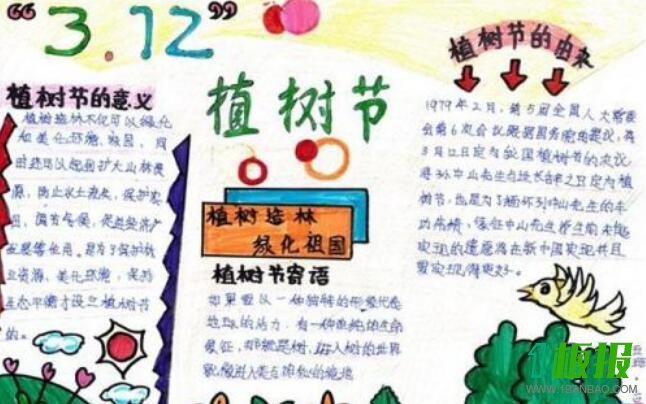 “3.12”
植树节
植树节的意义
植树造林不仅可以绿化
和美化环境、校园，同
时还可以起到扩大山林资
源，防止水土流失，保护农
田，调节气候，促进经济产
业发展等作用。是为了保护林
业资源、美化环境，保持
生态平衡才设立植树节
的。
植树造林
绿化祖国
植树节寄语
如果要以一种独特的形象代表
地球的活力，有一种单纯的生命
象征，那就是树，进入树的世界
就像进入类与
植树节的由来
1979年2月，第5届全国人大常委
会第6次会议根据国务院的提议，将
3月12日定为我国植树节的决议
将孙中山先生与世长辞之日定为植
树节，也是为了缅怀孙中山先生的丰
功伟绩，象征中山先生生前未能
实现的遗愿将在新中国实现并且
要实现得更好。
板报
WWW.1BANBAO.COM